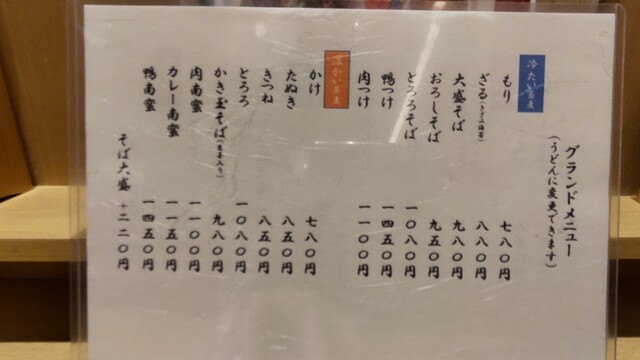 グランドメニュー
(うどんに変更できます)
冷たい蕎麦
もり 七八〇円
ざる(きざみ海苔) 八八〇円
大盛そば 九八〇円
おろしそば 九五〇円
とろろそば 一〇八〇円
鴨つけ 一四五〇円
肉つけ 一一〇〇円
温かい蕎麦
かけ 七八〇円
たぬき 八五〇円
きつね 八五〇円
とろろ 一〇八〇円
かき玉そば(生姜入り) 九八〇円
肉南蛮 一一〇〇円
カレー南蛮 一一五〇円
鴨南蛮 一四五〇円
そば大盛 +二二〇円